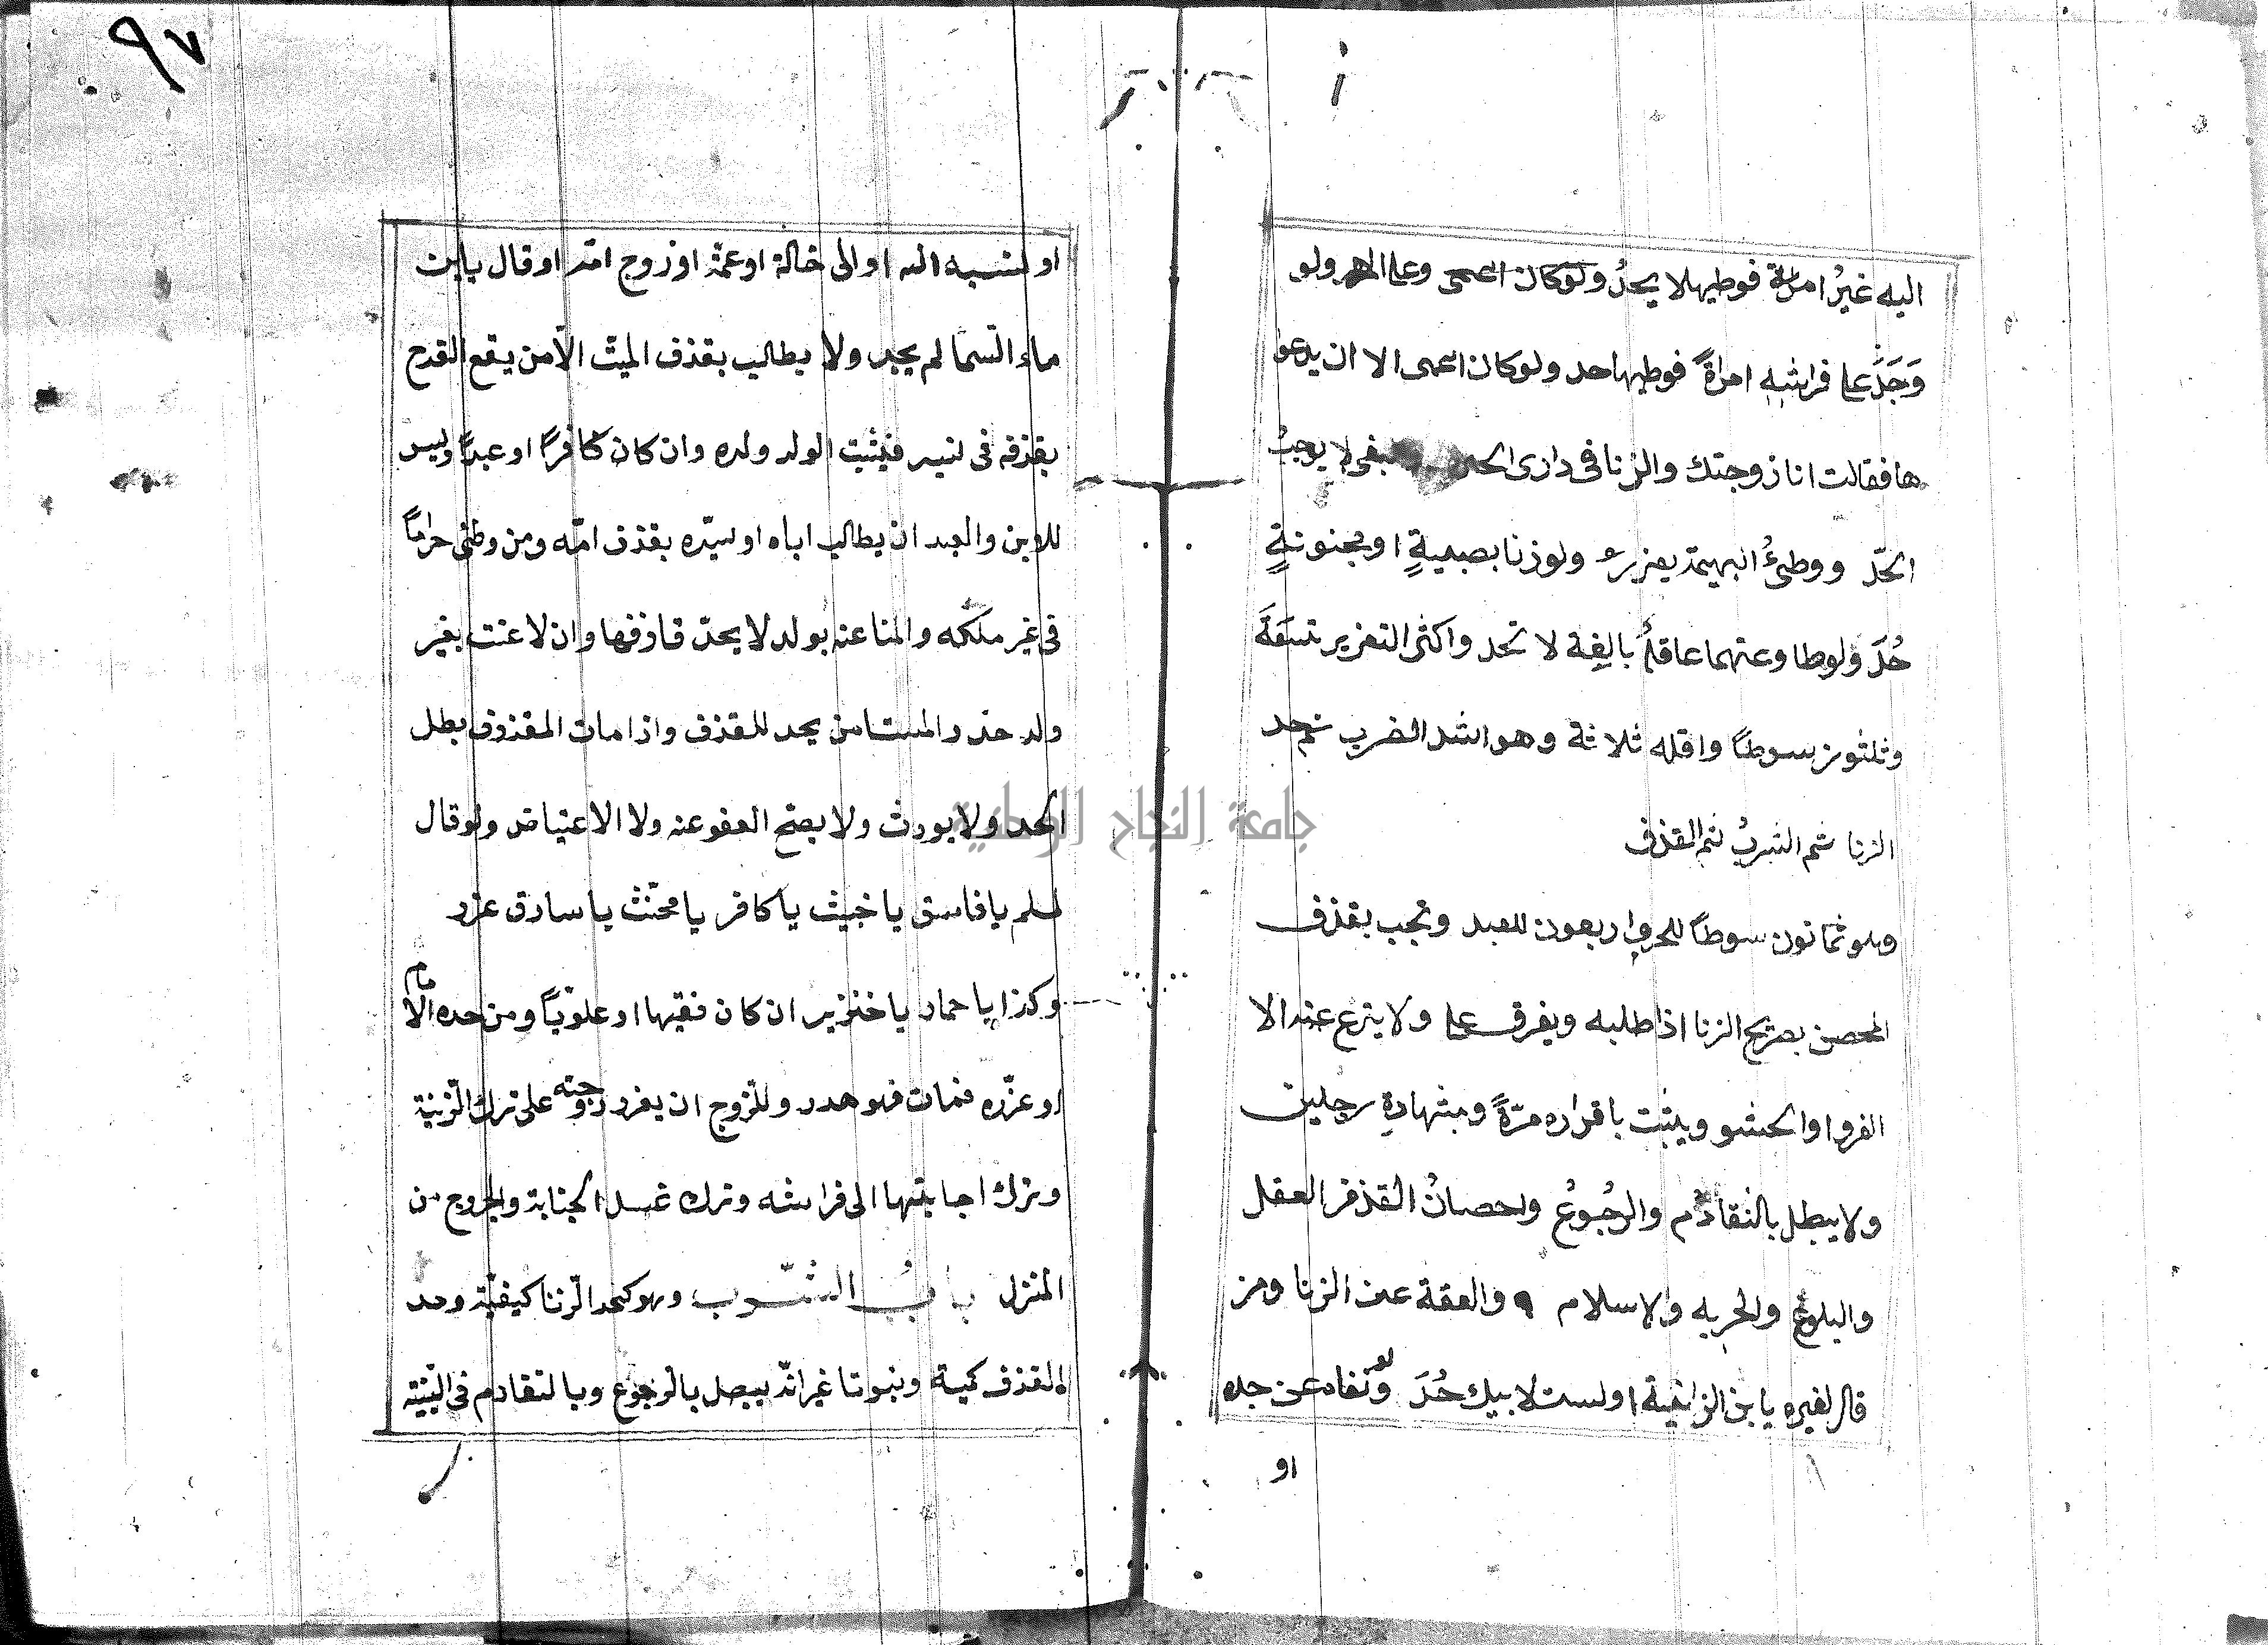 ٩٧
اليه غيرُ امرأة فوطيها لا يحدُ ولوكان اعمى وعلى المهر ولو
وَجَدَ على فراشه امراةً فوطيها حد ولوكان اعمى الا ان يدعو
ها فقالت انا زوجتك والزنا فى دارى الحرب والبغى لا يوجبُ
الحدّ ووطئُ البهيمة يعزر ولو زنا بصبيةٍ او مجنونةٍ
حُدَ ولو طاوعتهما عاقلة بالغة لا تحد واكثر التعزير تسعَةَ
وثلثون سوطًا واقله ثلاثة وهو اشد الضرب ثم حد
الزنا ثم الشربُ ثم القذف
وهو ثمانون سوطًا للحر واربعون للعبد وتجب بقذف
المحصن بصريح الزنا اذا طلبه ويفرق على ولا ينزع عنه الا
الفرو او الحشو ويثبت باقراره مرّةً وبشهادةِ رجلين
ولا يبطل بالتقادُم والرجُوعُ واحصانُ القذف العقل
والبلوغ والحريه والاسلام والعفة عن الزنا ومن
قال لغيره يا بن الزانية او لست لابيك حُدَ ولو نفاه عن جده
او
او نسبه اليه او الى خالة او عمّة او زوج امّه او قال يا بن
ماء السّما لم يحد ولا يطالب بقذف الميّت الّا من يقع القدح
بقذفه فى نسبه فيثبت الولد ولده وان كان كافرًا او عبدًا وليس
للابن والعبد ان يطالب اباه او سيّده بقذف امّه ومن وطئ حرامًا
فى غير ملكه والملاعنه بولد لا يحدّ قاذفها وان لاعنت بغير
ولد حدّ والمستامن يحد للقذف واذا مات المقذوف بطل
الحد ولا يورث ولا يصحّ العفو عنه ولا الاعتياض ولو قال
لمسلم يا فاسق يا خبيث يا كافر يا مخنّث يا سارق عزر
وكذا يا حمار يا خنزير ان كان فقيها او علويًّا ومن حده الامام
او عزّره فمات فهو هدر وللزوج ان يعزر زوجته على ترك الزينة
وترك اجابتها الى فراشه وترك غسل الجنابة والخروج من
المنزل بابُ الشّرب وهو كحد الزنا كيفيّة وحد
القذف كمية وثبوتا غير انّه يبطل بالرجوع وبالتقادم فى البيّنة